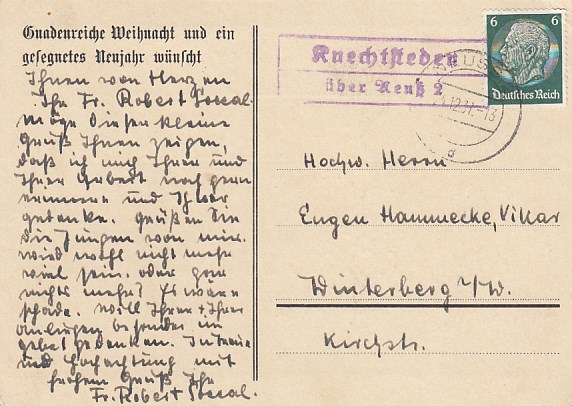 Gnadenreiche Weihnacht und ein
gesegnetes Neujahr wünscht
Ihnen von Herzen
Ihr Fr. Robert
Möge dieser kleine
Gruß Ihnen zeigen,
daß ich mich Ihrer und
Ihrer Arbeit noch gern
erinnere und Ihrer
gedenke. Grüßen Sie
die Jungen von mir.
wird wohl nicht mehr
viel sein. oder gar
nichts mehr? Es wäre
schade. will Ihrer + Ihrer
Anliegen besonders im
Gebet gedenken. In Treue
und Hochachtung mit
frohem Gruß Ihr
Fr. Robert
Knechtsteden
über Neuß 2
6 6
Deutsches Reich
Hochw. Herrn
Eugen Hammecke, Vikar
Winterberg i/W.
Kirchstr.